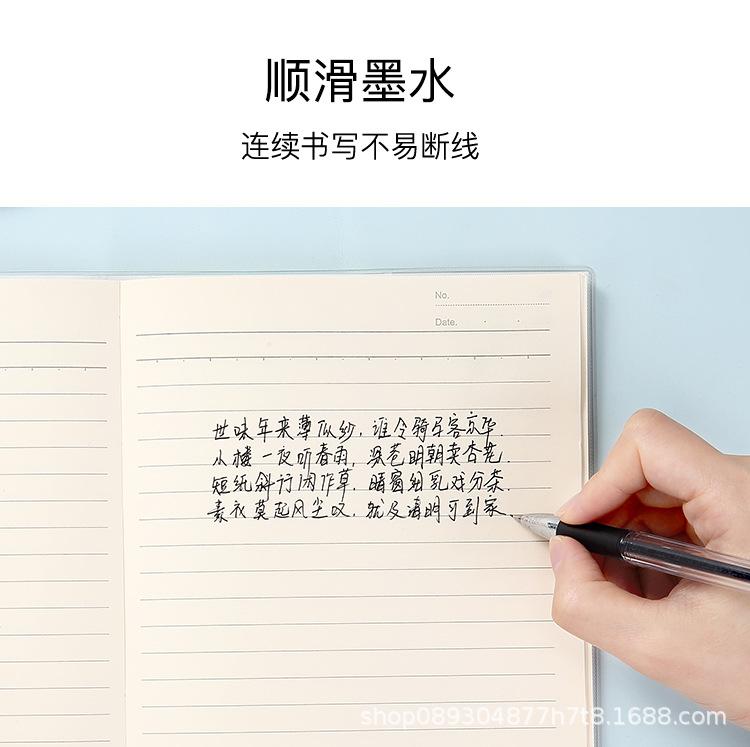 顺滑墨水
连续书写不易断线
No.
Date.
世味年来薄似纱,谁令骑马客京华.
小楼一夜听春雨,深巷明朝卖杏花.
短纸斜行闲作草,晴窗细乳戏分茶.
素衣莫起风尘叹,犹及清明可到家.
shop089304877h7t8.1688.com